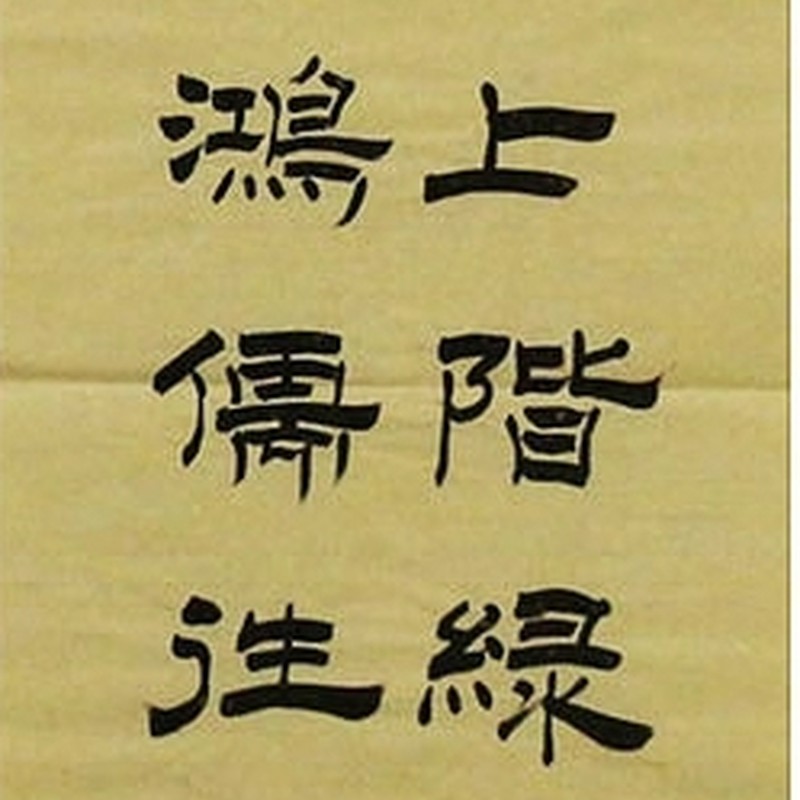 上階緑
鴻儒往